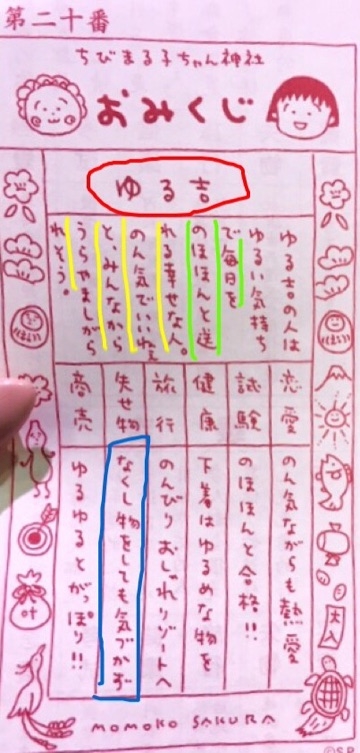 第二十番
ちびまる子ちゃん神社
おみくじ
ゆる吉
ゆる吉の人は
ゆるい気持ち
で毎日を
のほほんと送
れる幸せな人。
のん気でいいねぇ
と、みんなから
うらやましがら
れそう。
恋愛
のん気ながらも熱愛
試験
のほほんと合格!!
健康
下着はゆるめな物を
旅行
のんびりおしゃれリゾートへ
失せ物
なくし物をしても気づかず
商売
ゆるゆるとがっぽり!!
叶
大入
MOMOKO SAKURA
©S.P